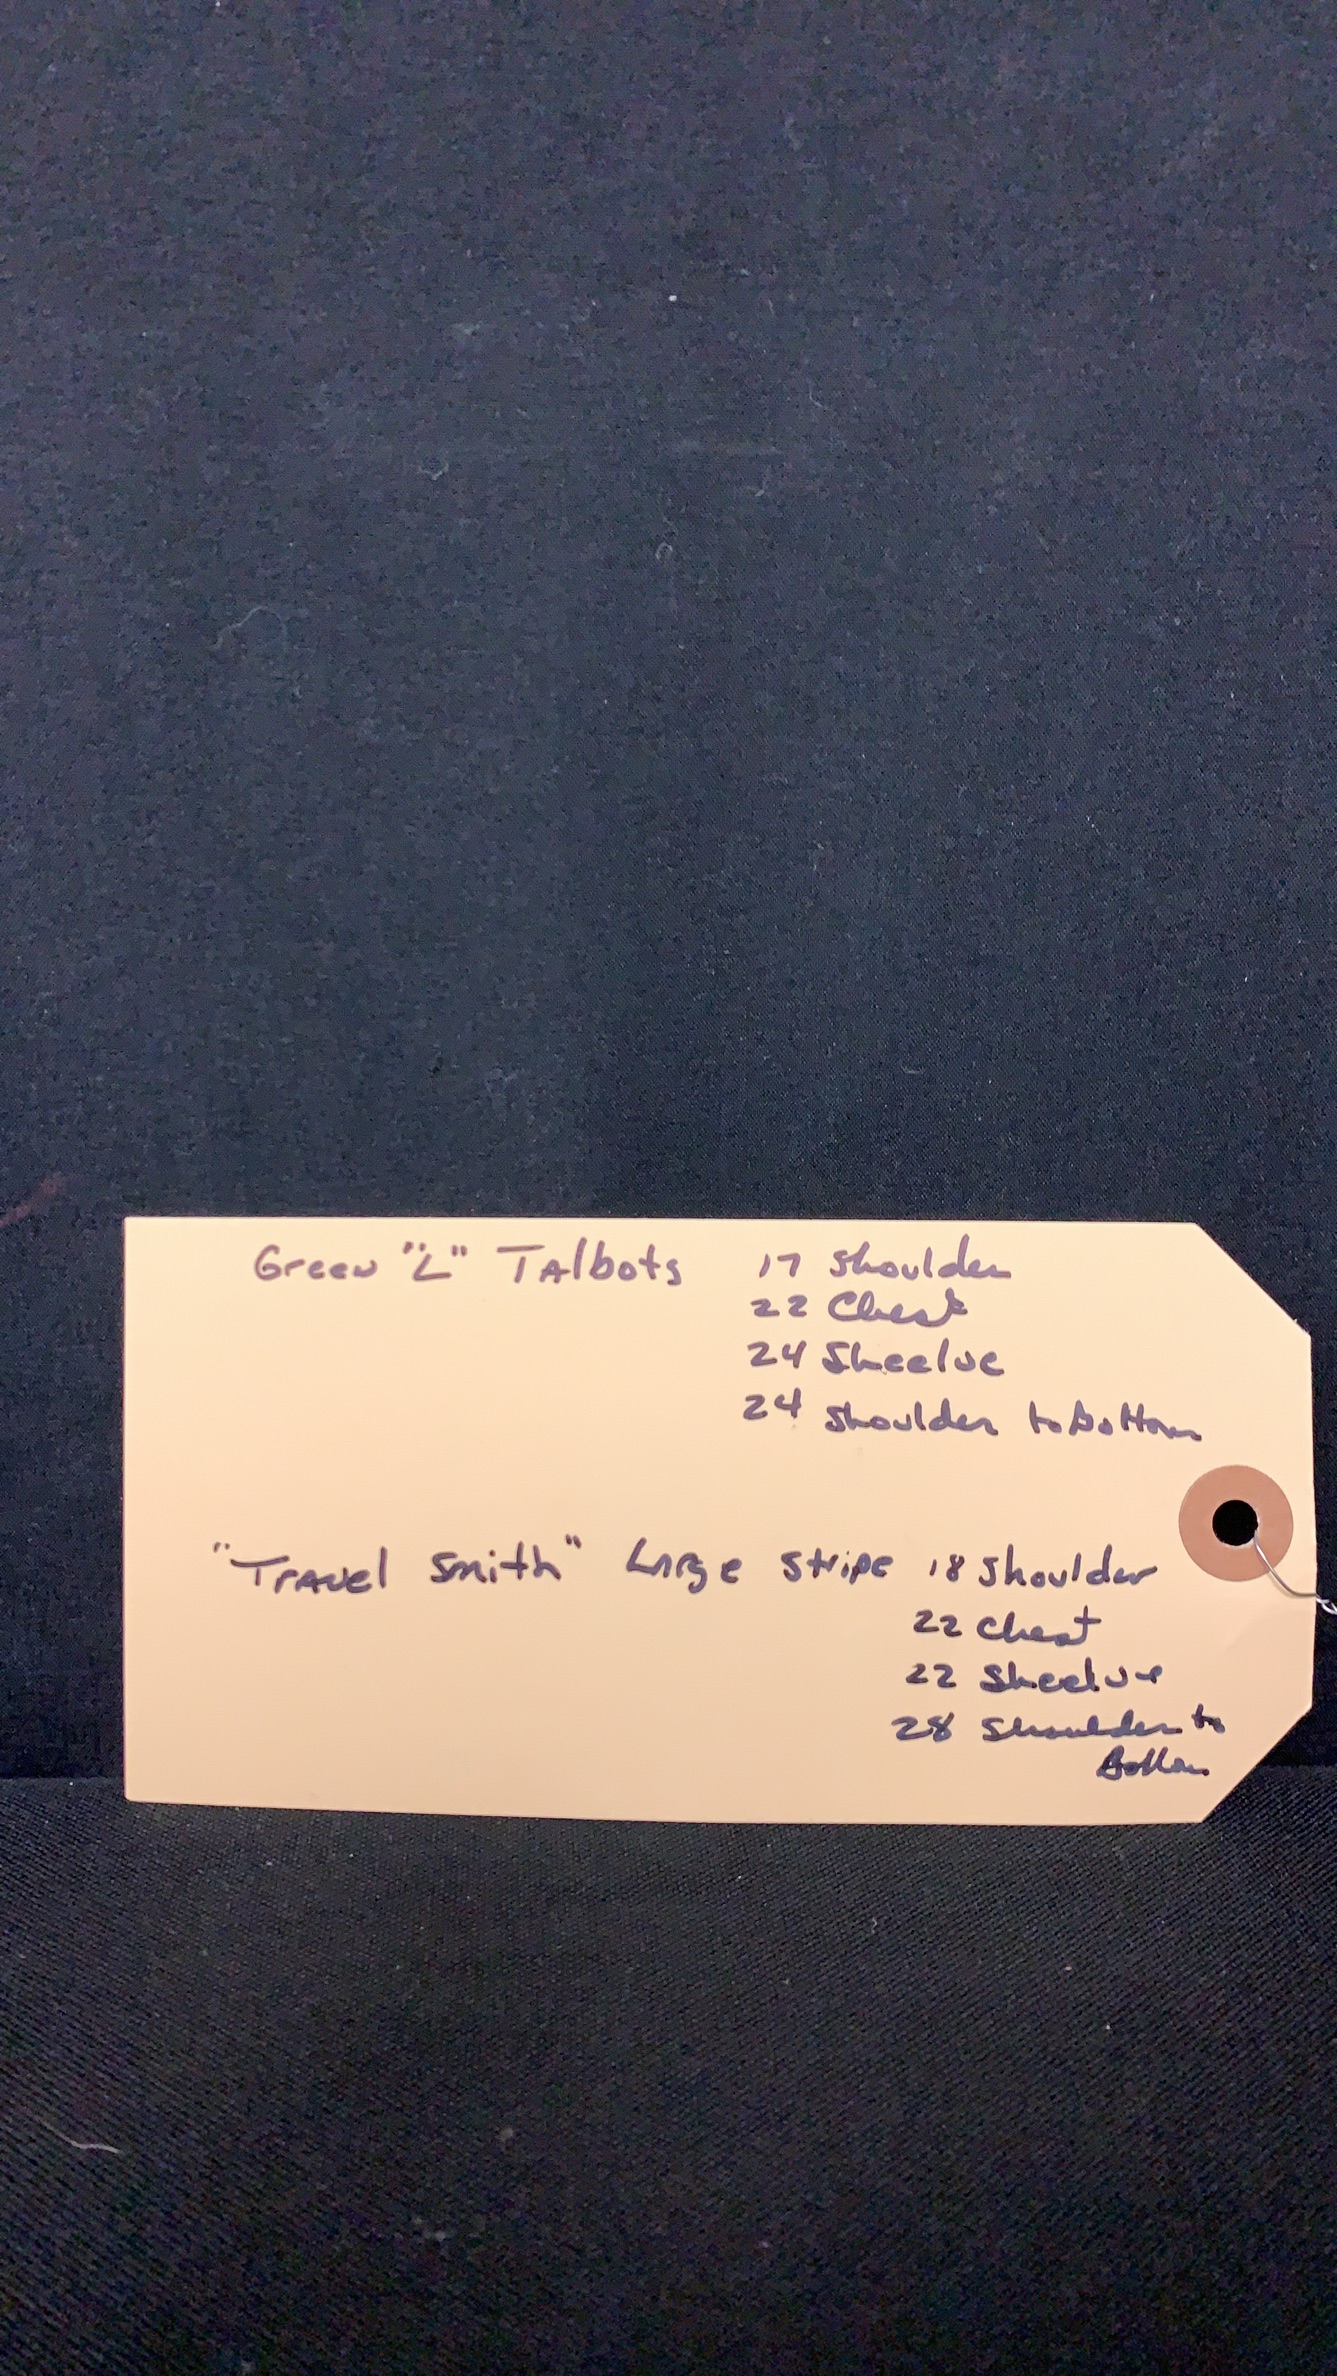 Green "L" Talbots 17 shoulder
22 Chest
24 Sheelve
24 shoulder to bottom
"Travel Smith" Large Stripe 18 shoulder
22 chest
22 Sheelve
28 shoulder to
Bottom